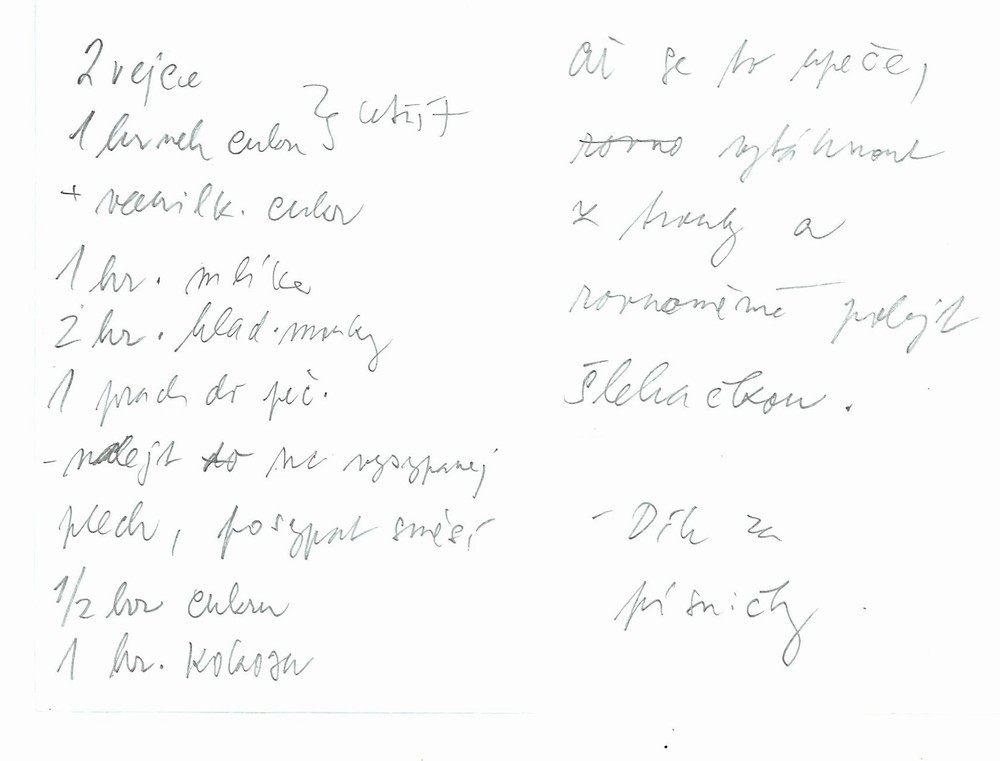 2 vejce
1 hrnek cukru } utřít
+ vanilk. cukr
1 hr. mlíka
2 hr. hlad. mouky
1 prach do peč.
- nalejt to na vysypanej
plech, posypat směsí
1/2 hr cukru
1 hr. kokosu
Až se to upeče,
rovno vytáhnout
z trouby a
rovnoměrně polejt
šlehačkou.
- Dík za
písničky